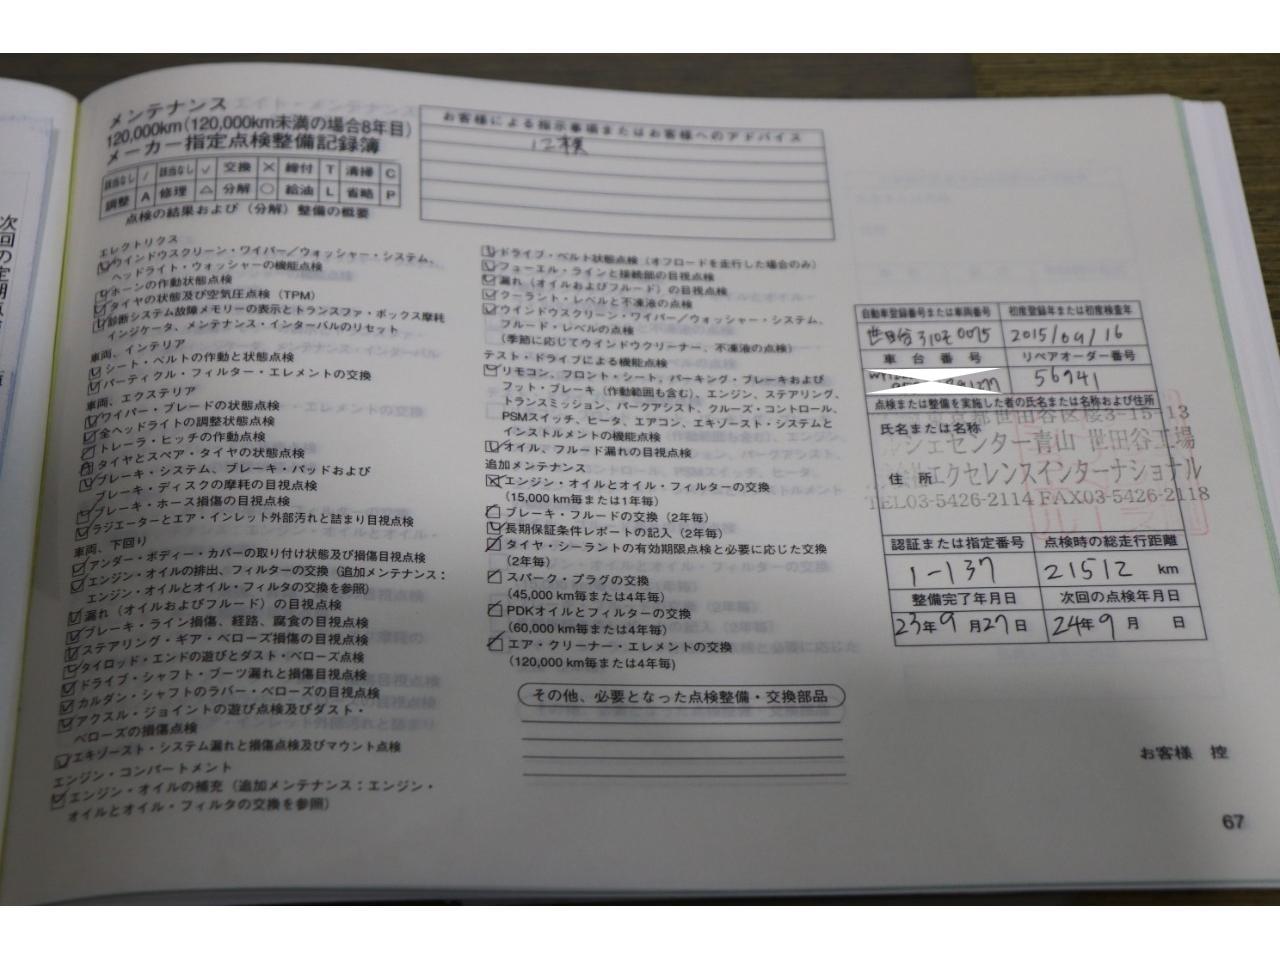 メンテナンス
120,000km(120,000km未満の場合8年目)
メーカー指定点検整備記録簿
該当なし / 該当なし ✓ 交換 × 締付 T 清掃 C
調整 A 修理 △ 分解 ○ 給油 L 省略 P
点検の結果および(分解)整備の概要
お客様による指示事項またはお客様へのアドバイス
12検
エレクトリクス
ウインドウスクリーン・ワイパー/ウォッシャー・システム、
ヘッドライト・ウォッシャーの機能点検
ホーンの作動状態点検
タイヤの状態及び空気圧点検(TPM)
診断システム故障メモリーの表示とトランスファ・ボックス摩耗
インジケータ、メンテナンス・インターバルのリセット
車両、インテリア
シート・ベルトの作動と状態点検
パーティクル・フィルター・エレメントの交換
車両、エクステリア
ワイパー・ブレードの状態点検
全ヘッドライトの調整状態点検
トレーラ・ヒッチの作動点検
タイヤとスペア・タイヤの状態点検
ブレーキ・システム、ブレーキ・パッドおよび
ブレーキ・ディスクの摩耗の目視点検
ブレーキ・ホース損傷の目視点検
ラジエーターとエア・インレット外部汚れと詰まり目視点検
車両、下回り
アンダー・ボディー・カバーの取り付け状態及び損傷目視点検
エンジン・オイルの排出、フィルターの交換(追加メンテナンス:
エンジン・オイルとオイル・フィルタの交換を参照)
漏れ(オイルおよびフルード)の目視点検
ブレーキ・ライン損傷、経路、腐食の目視点検
ステアリング・ギア・ベローズ損傷の目視点検
タイロッド・エンドの遊びとダスト・ベローズ点検
ドライブ・シャフト・ブーツ漏れと損傷目視点検
カルダン・シャフトのラバー・ベローズの目視点検
アクスル・ジョイントの遊び点検及びダスト・
ベローズの損傷点検
エキゾースト・システム漏れと損傷点検及びマウント点検
エンジン・コンパートメント
エンジン・オイルの補充(追加メンテナンス:エンジン・
オイルとオイル・フィルタの交換を参照)
ドライブ・ベルト状態点検(オフロードを走行した場合のみ)
フューエル・ラインと接続部の目視点検
漏れ(オイルおよびフルード)の目視点検
クーラント・レベルと不凍液の点検
ウインドウスクリーン・ワイパー/ウォッシャー・システム、
フルード・レベルの点検
(季節に応じてウインドウクリーナー、不凍液の点検)
テスト・ドライブによる機能点検
リモコン、フロント・シート、パーキング・ブレーキおよび
フット・ブレーキ(作動範囲も含む)、エンジン、ステアリング、
トランスミッション、パークアシスト、クルーズ・コントロール、
PSMスイッチ、ヒータ、エアコン、エキゾースト・システムと
インストルメントの機能点検
オイル、フルード漏れの目視点検
追加メンテナンス
エンジン・オイルとオイル・フィルターの交換
(15,000 km毎または1年毎)
ブレーキ・フルードの交換(2年毎)
長期保証条件レポートの記入(2年毎)
タイヤ・シーラントの有効期限点検と必要に応じた交換
(2年毎)
スパーク・プラグの交換
(45,000 km毎または4年毎)
PDKオイルとフィルターの交換
(60,000 km毎または4年毎)
エア・クリーナー・エレメントの交換
(120,000 km毎または4年毎)
その他、必要となった点検整備・交換部品
自動車登録番号または車両番号 初度登録年または初度検査年
世田谷 310 2015/09/16
車台番号 リペアオーダー番号
56941
点検または整備を実施した者の氏名または名称および住所
京都世田谷区桜3-15-13
氏名または名称
ルシェセンター青山 世田谷工場
住所
エクセレンスインターナショナル
TEL03-5426-2114 FAX03-5426-2118
認証または指定番号 点検時の総走行距離
1-137 21512 km
整備完了年月日 次回の点検年月日
23年9月27日 24年9月 日
お客様 控
67
次回の定期点